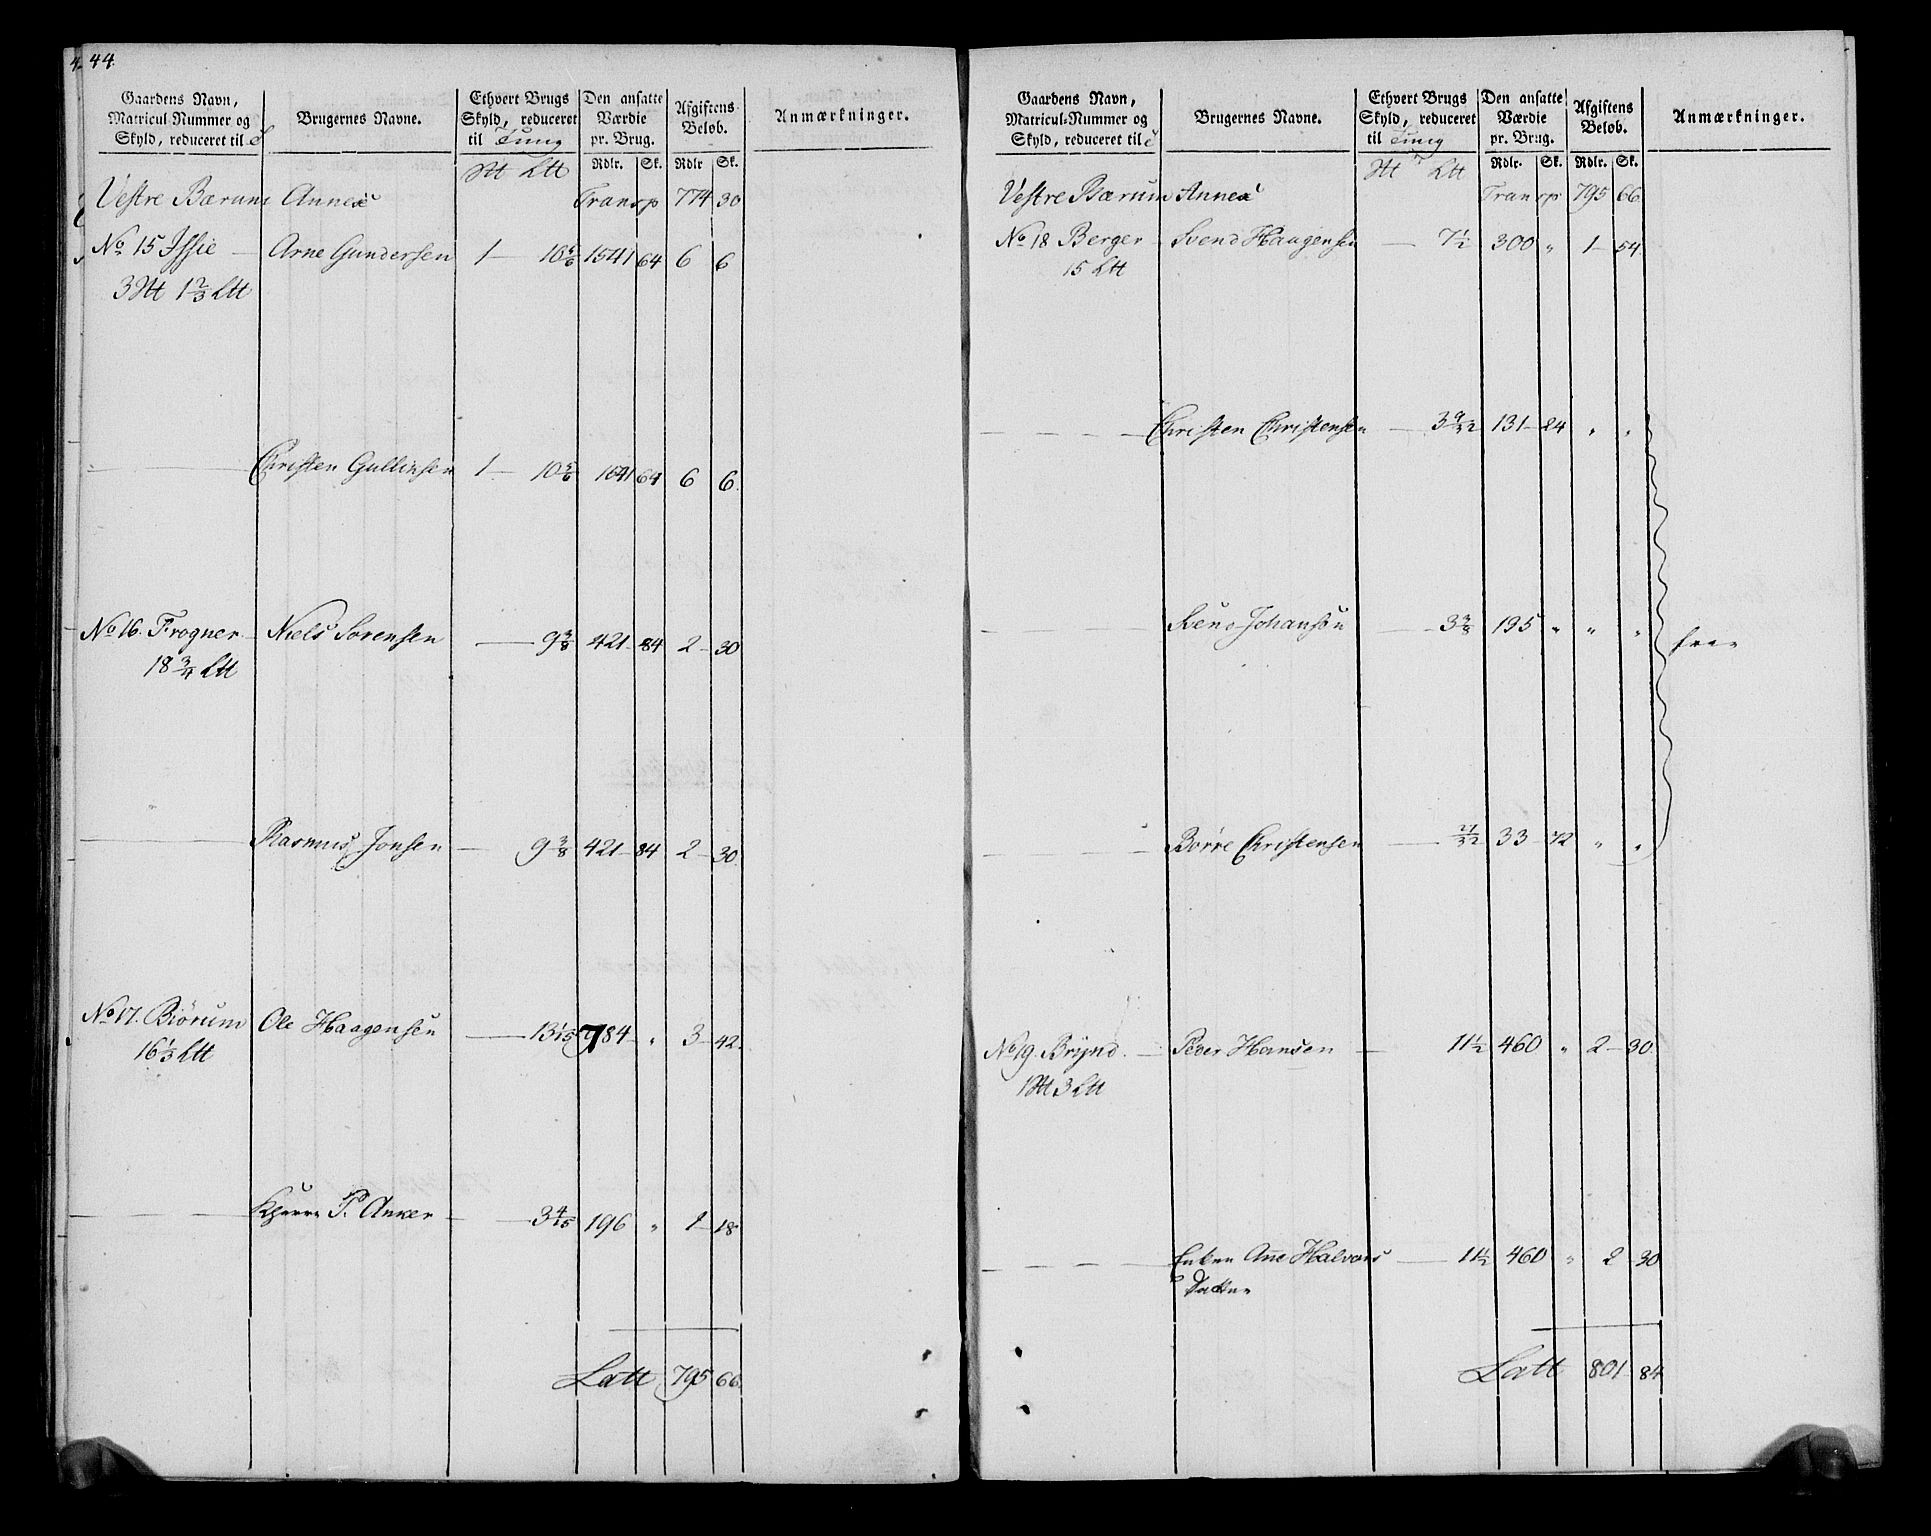 44.
Gaardens Navn, Matricul-Nummer og Skyld, reduceret til
Brugernes Navne.
Ethvert Brugs Skyld, reduceret til Tung
Den ansatte Værdie pr. Brug.
Afgiftens Beløb.
Anmærkninger.
Rdlr. Sk. Rdlr Sk.
Vestre Bærum Annex Transp 774 30
No 15 Issie Arne Gundersen 1 10 5/6 1541 64 6 6
3 1 2/3
Christen Gullichsen 1 10 5/6 1541 64 6 6.
No 16. Frogner Niels Sørensen 9 3/8 421 84 2 30
18 3/4
Rasmus Jonsen 9 3/8 421 84 2 30.
No 17. Biørum Ole Haagensen 13 1/15 784 " 3 42.
16 1/3
P. Anker 3 4/15 196 " 1 18
Latt 795 66.
Gaardens Navn, Matricul-Nummer og Skyld, reduceret til
Brugernes Navne.
Ethvert Brugs Skyld, reduceret til Tung
Den ansatte Værdie pr. Brug.
Afgiftens Beløb.
Anmærkninger.
Rdlr. Sk. Rdlr. Sk.
Vestre Bærum Annex Transp 795 66.
No 18 Berger Svend Haagensen 7 1/2 300 " 1 54.
15
Christen Christensen 3 9/32 131 24 " "
Svend Johansen 3 3/8 135 " " "
Børre Christensen 27/32 33 72 " "
No 19. Brynd. Peder Hansen 11 1/2 460 " 2 30.
1 3
Enken Ane Halvors 11 1/2 460 " 2 30
Datter
Latt 801 84